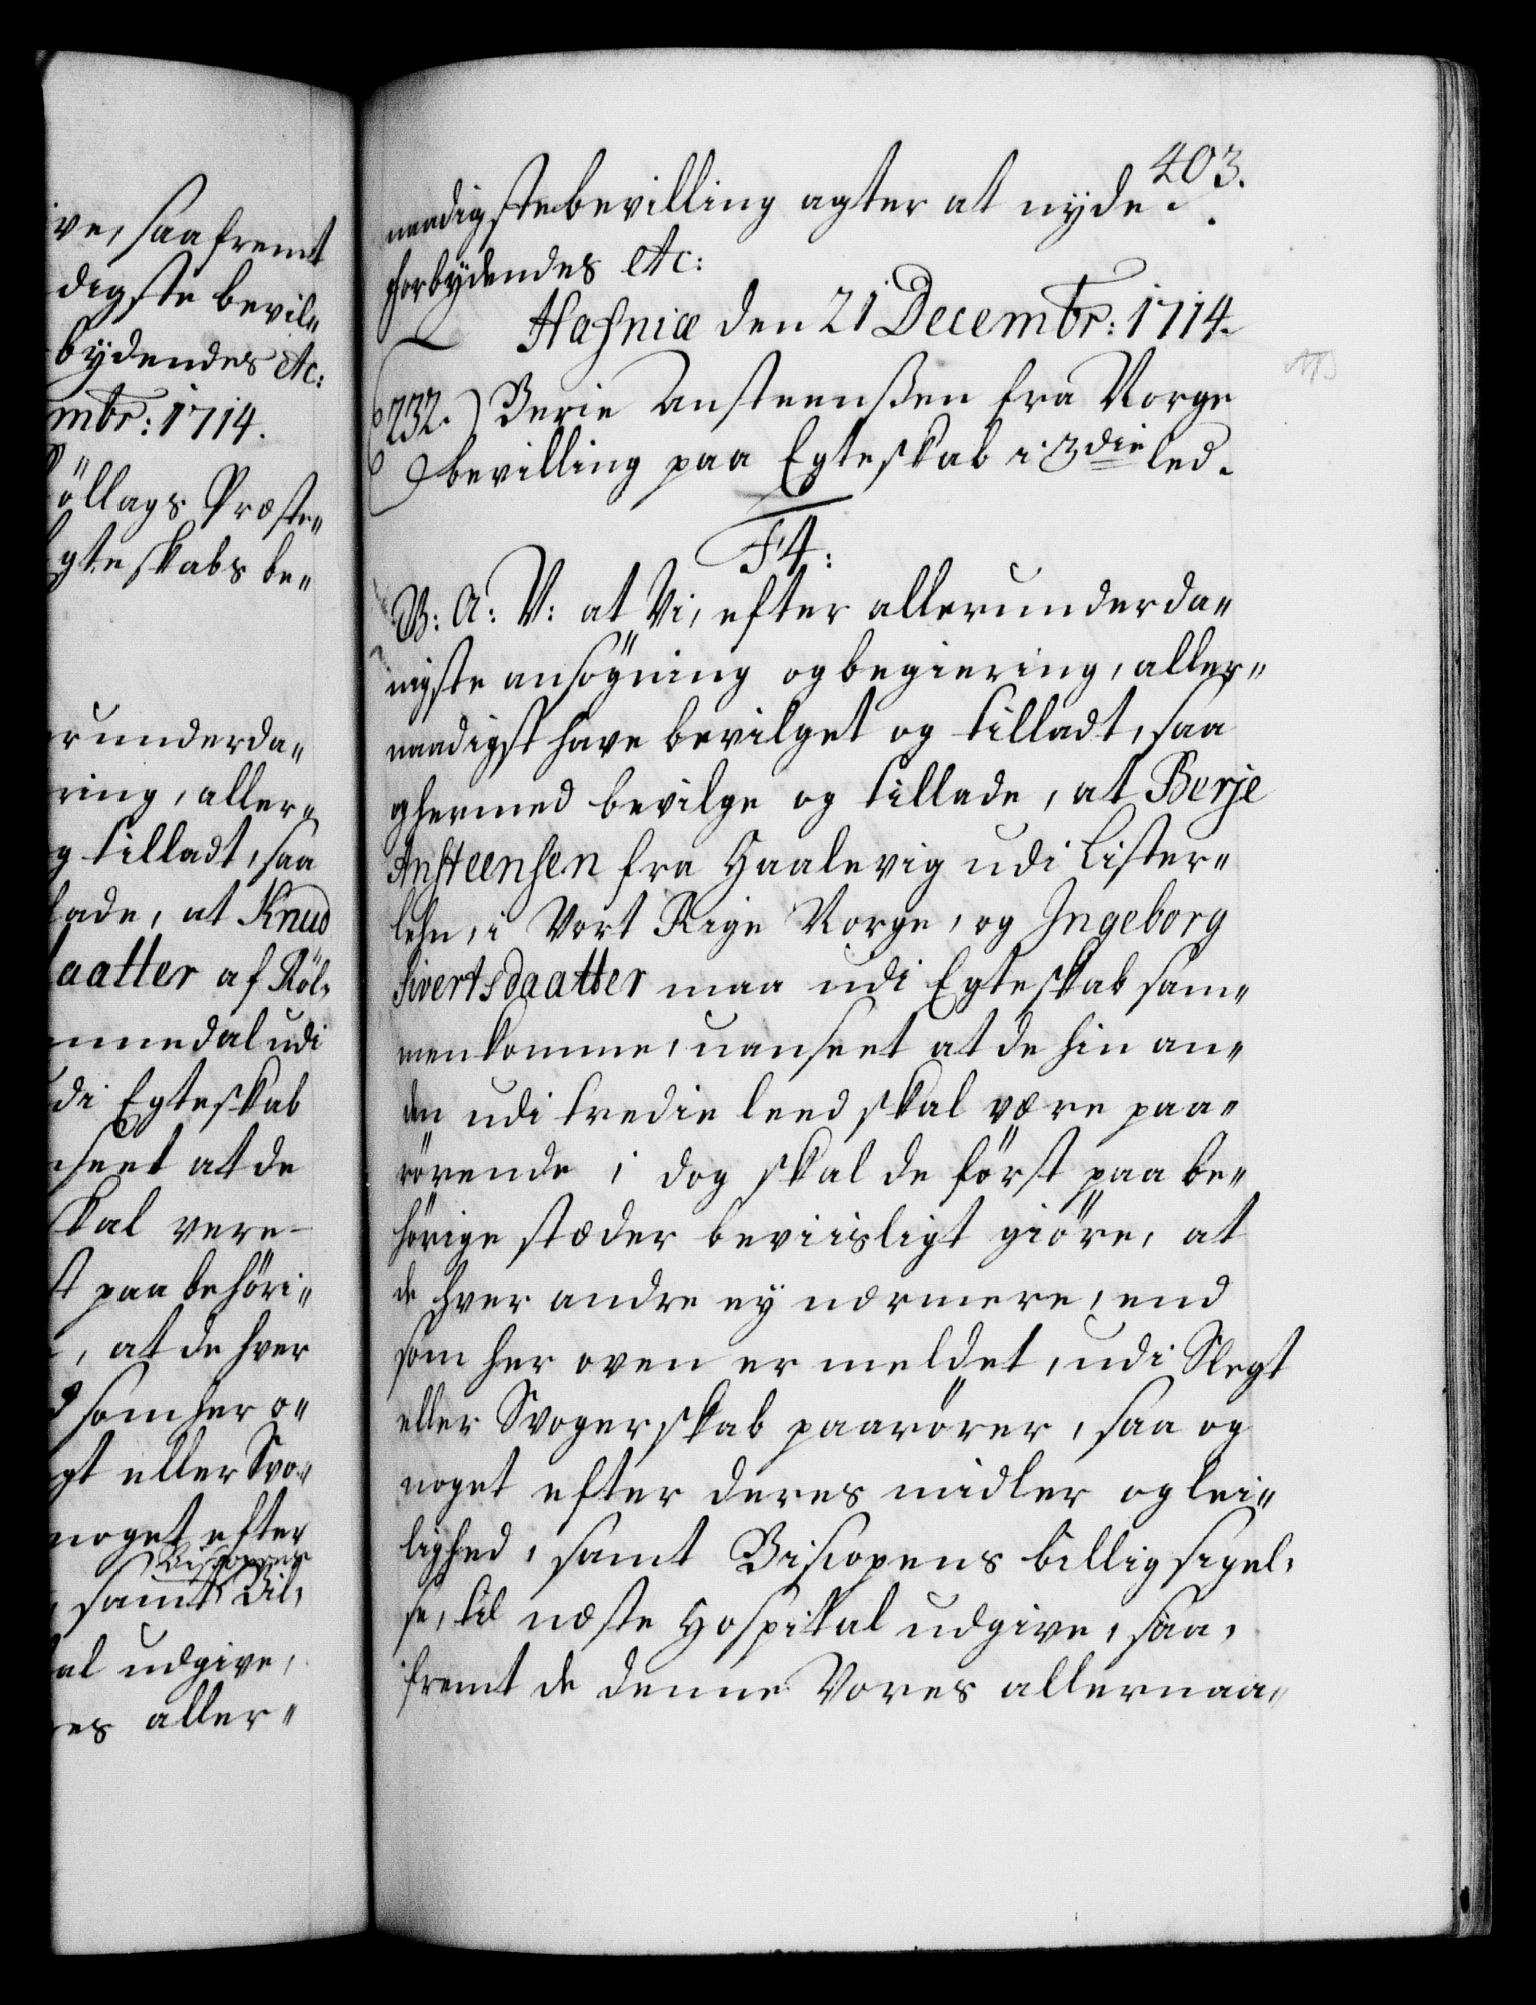 ve, saafremt
digste bevil„
bydendes etc:
mbr: 1714.
öllags Præste„
gteskabs be„
runderda„
ring, aller„
g tilladt, saa
lade, at Knud
aatter af Röl„
mmedal udi
di Egteskab
seet at de
skal vere
t paa behöri„
, at de hver
d som her o„
gt eller Svo„
noget efter
Biscopens
, samt Bil„
al udgive,
es aller„
403.
naadigste bevilling agter at nyde.
Forbydendes etc:
Hafniæ den 21 Decembr: 1714.
232.) Berie Ansteenßen fra Norge
bevilling paa Egteskab i 3die led.
F4:
G: A: V: at Vi, efter allerunderda„
nigste ansögning og begiering, aller„
naadigst have bevilget og tilladt, saa
og hermed bevilge og tillade, at Berje
Ansteensen fra Haalevig udi Lister„
lehn, i Vort Rige Norge, og Ingeborg
Sivertsdaatter maa udi Egteskab sam„
menkomme, uanseet at de hin an„
den udi tredie leed skal være paa„
rörende; dog skal de först paa be„
hörige stæder beviisligt giöre, at
de hver andre ey nærmere, end
som her oven er meldet, udi Slegt
eller Svogerskab paarörer, saa og
noget efter deres midler og lei„
lighed, samt Biscopens billigsigel„
se, til næste Hospital udgive, saa„
fremt de denne Vores allernaa„